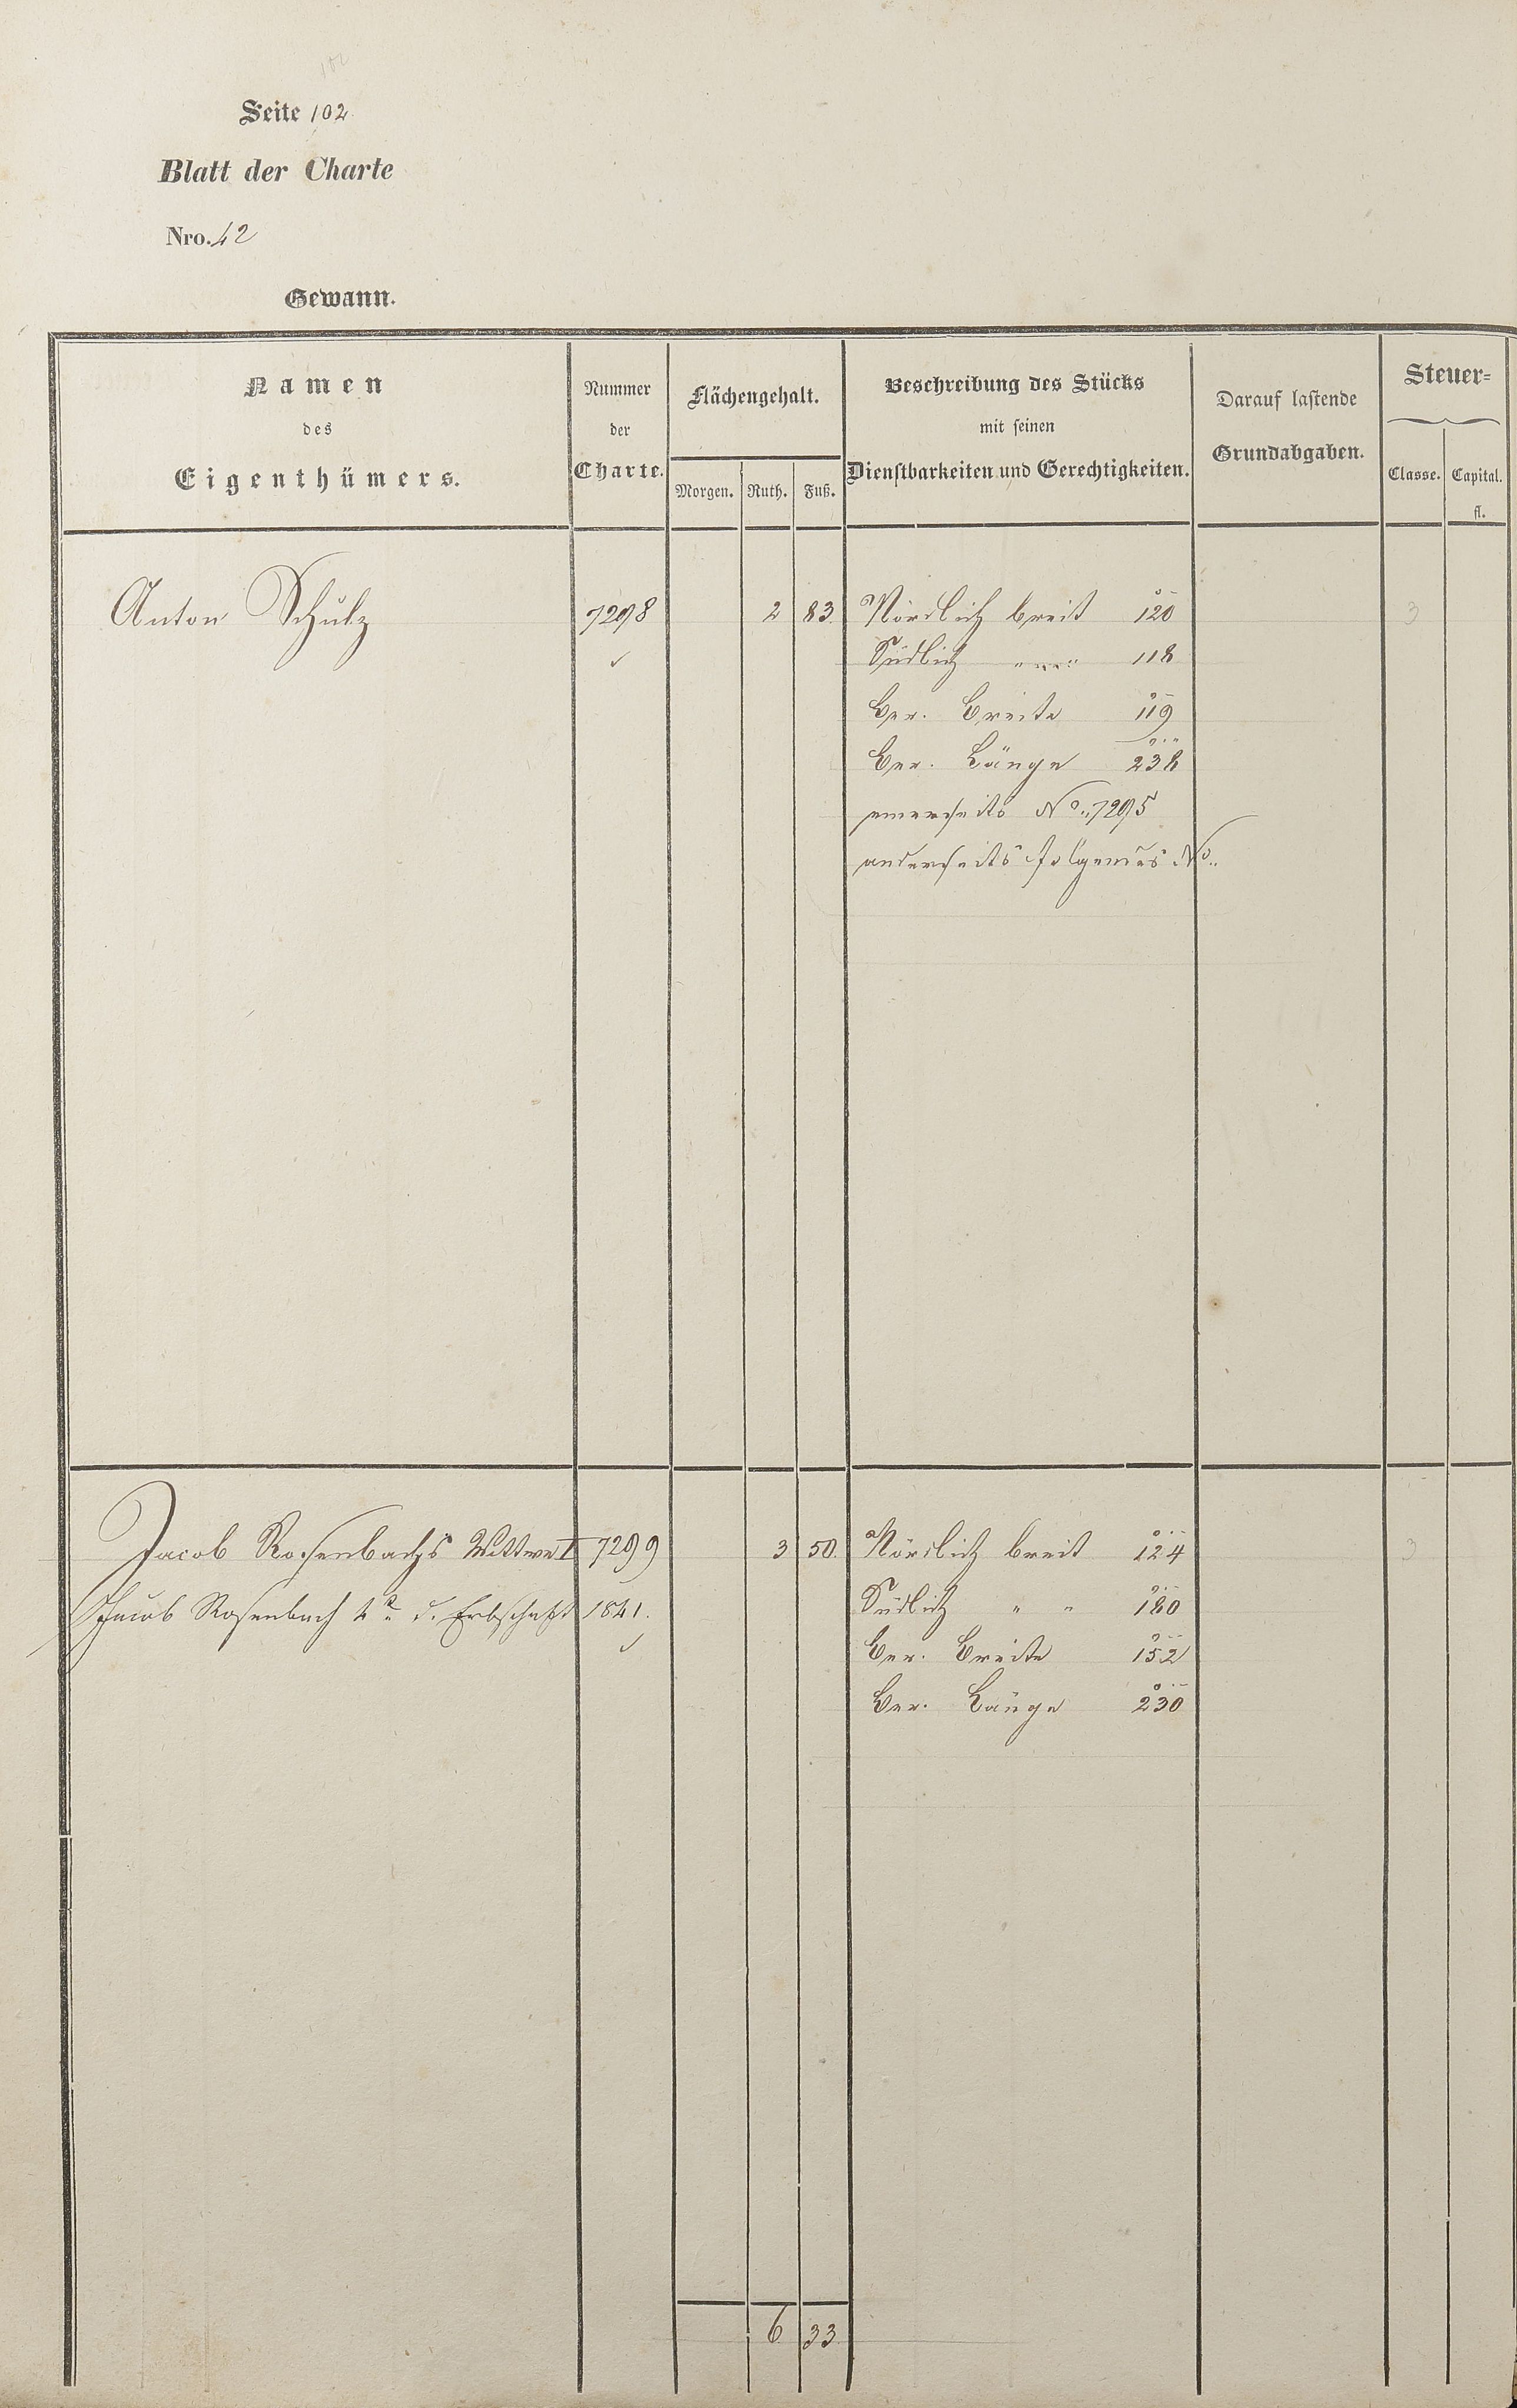 102
Seite 102
Blatt der Charte
Nro. 42
Gewann.
Namen des Eigenthümers.
Nummer der Charte.
Flächengehalt.
Morgen. Ruth. Fuß.
Beschreibung des Stücks mit seinen Dienstbarkeiten und Gerechtigkeiten.
Darauf lastende Grundabgaben.
Steuer=
Classe. Capital. fl.
Anton Schulz 7298 2 83 Nördlich breit 120 3
Südlich " " 118
ber. Breite 119
ber. Länge 238
einerseits No. 7295
anderseits folgendes No.
Jacob Rosenbachs Wittwe I 7299 3 50 Nördlich breit 124 3
Jacob Rosenbach d. Erbschaft 1841. Südlich " " 180
ber. Breite 152
ber. Länge 230
6 33